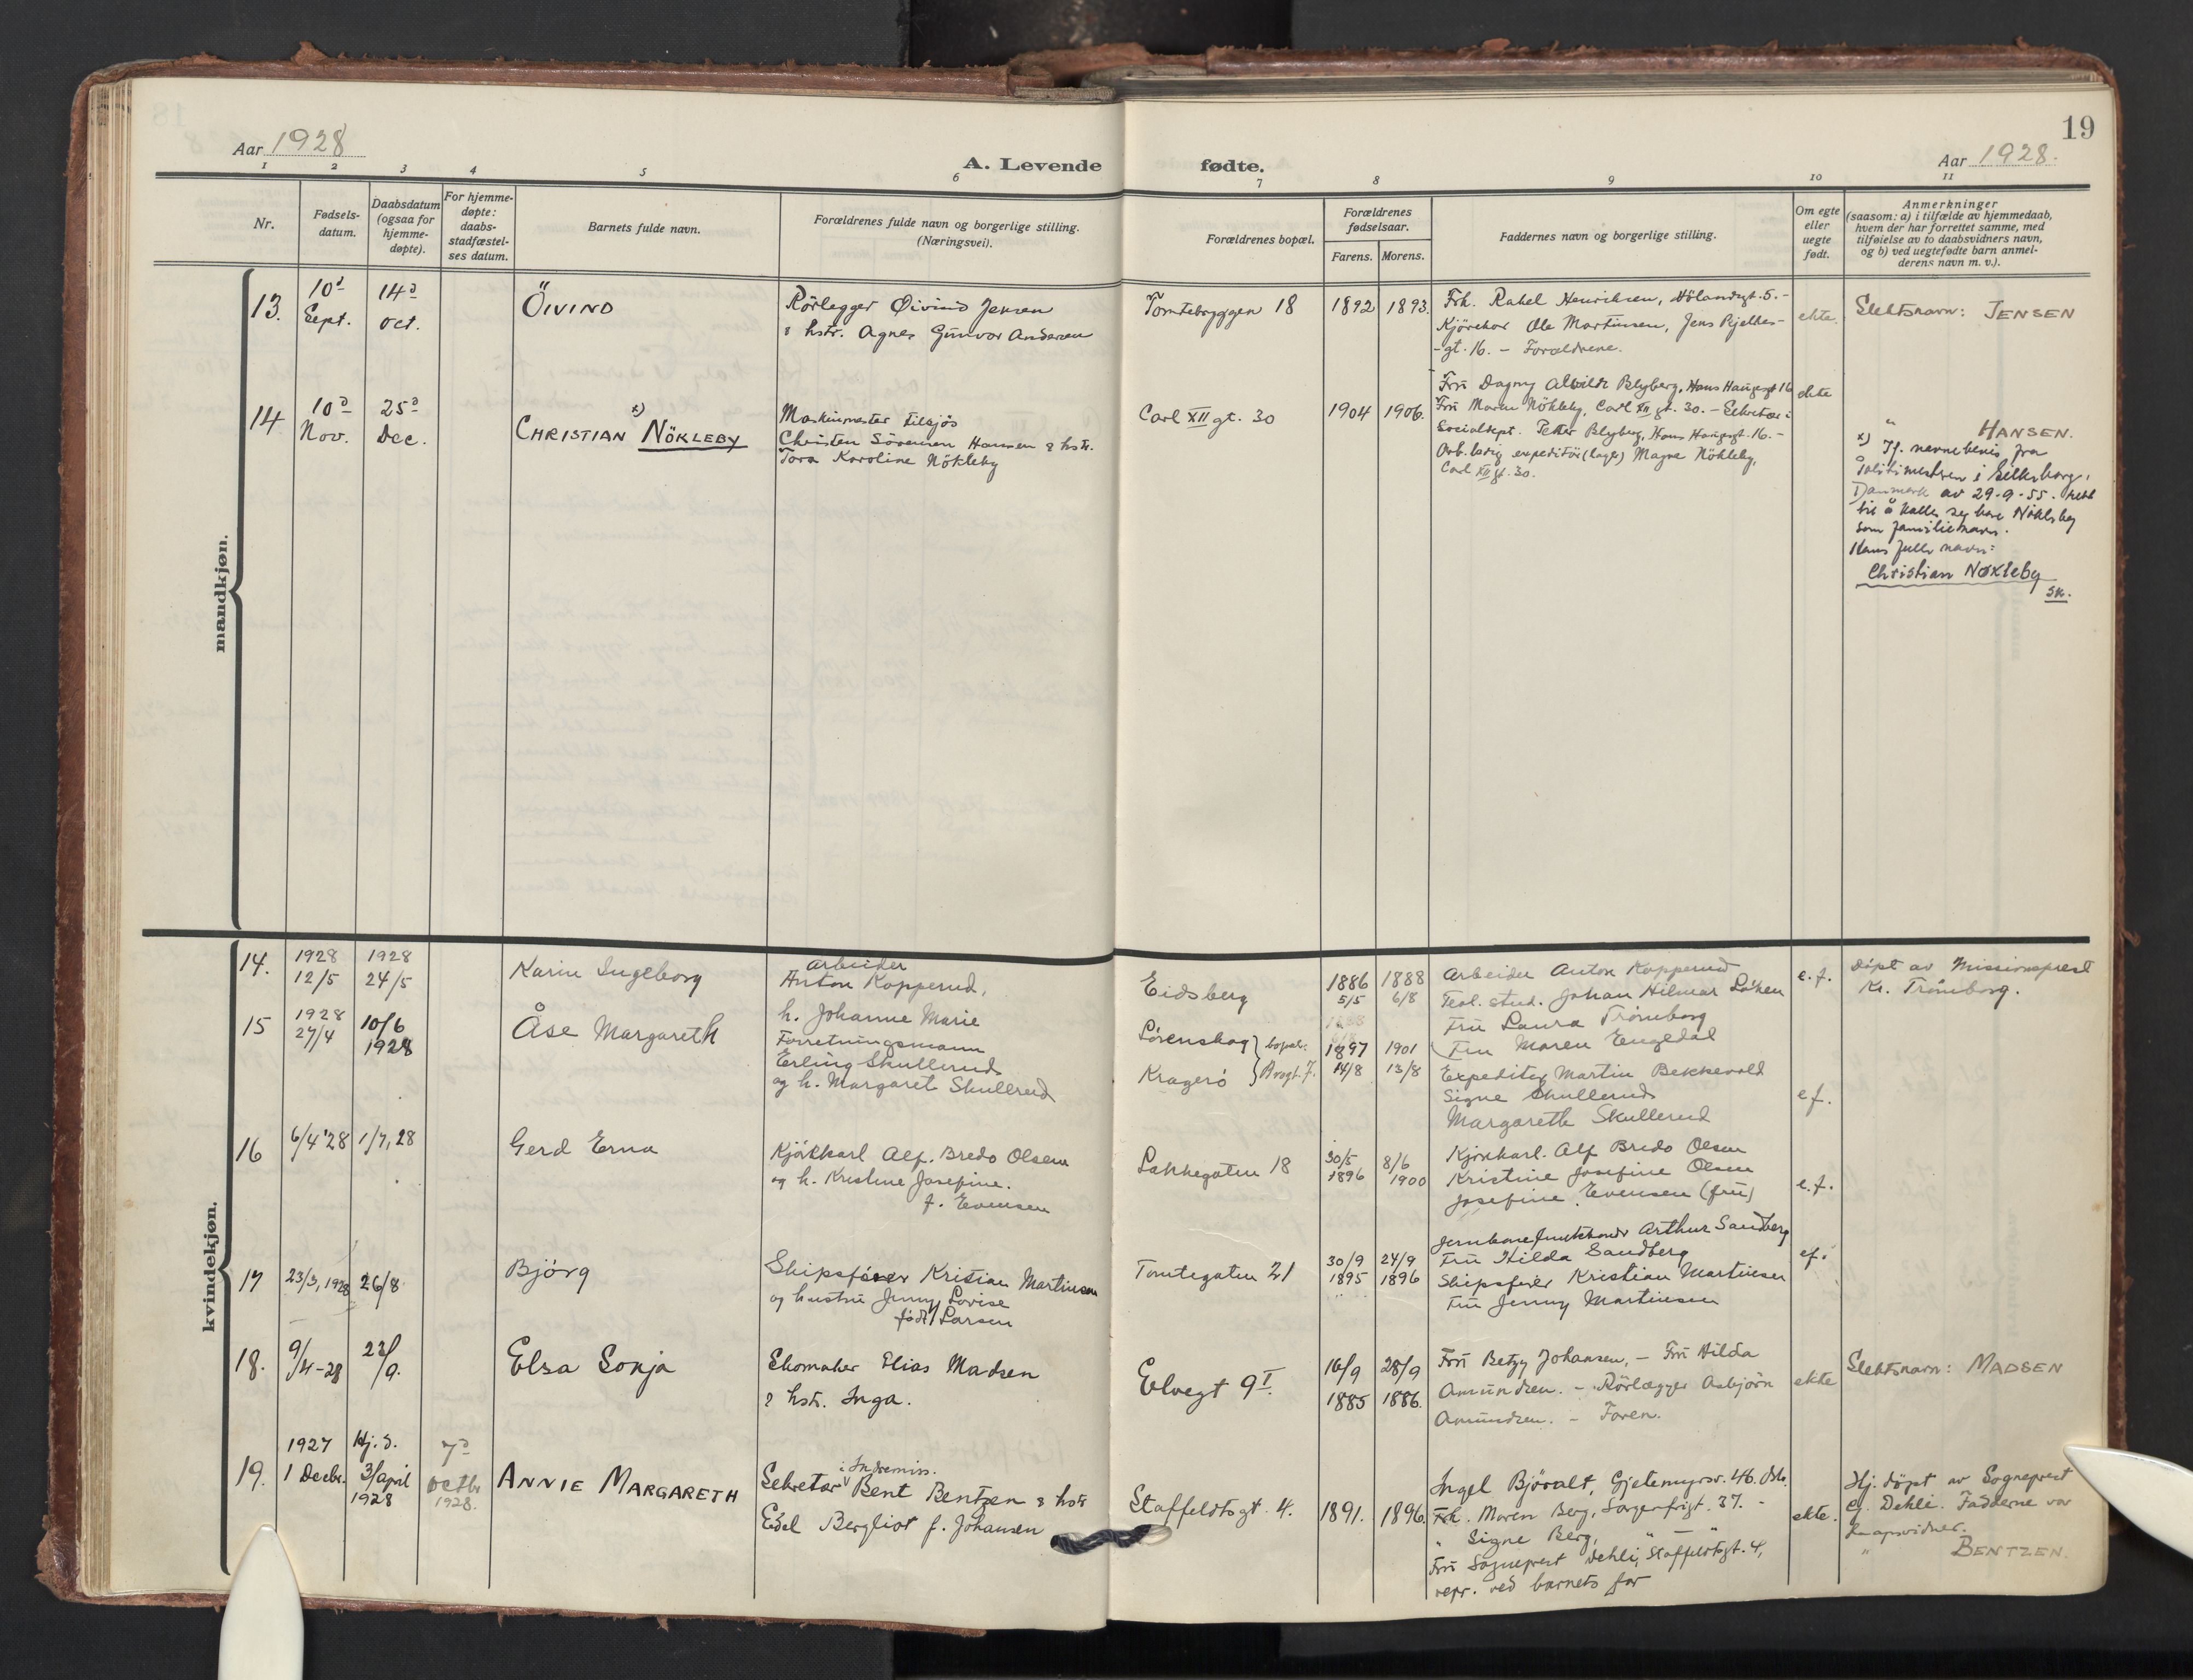 19
Aar 1928
A. Levende fødte.
Aar 1928.
1 2 3 4 5 6 7 8 9 10 11
Nr.
Fødsels-
datum.
Daabsdatum
(ogsaa for
hjemme-
døpte).
For hjemme-
døpte:
daabs-
stadfæstel-
ses datum.
Barnets fulde navn.
Forældrenes fulde navn og borgerlige stilling.
(Næringsvei).
Forældrenes bopæl.
Forældrenes
fødselsaar.
Farens. Morens.
Faddernes navn og borgerlige stilling.
Om egte
eller
uegte
født.
Anmerkninger
(saasom: a) i tilfælde av hjemmedaab,
hvem der har forrettet samme, med
tilføielse av to daabsvidners navn,
og b) ved uegtefødte barn anmel-
derens navn m. v.).
mandkjøn.
13.
10d
Sept.
14d
oct.
ÖIVIND
Rörlegger Øivind Jensen
& hstr. Agnes Gunvor Andersen
Tomtebryggen 18
1892 1893.
Frk. Rakel Henriksen, Hölandsgt. 5. -
Kjörekar Ole Martinsen, Jens Bjelkes-
-gt. 16. - Forældrene.
ekte.
Slektsnavn: JENSEN
14
10d
Nov.
25d
Dec.
x)
CHRISTIAN NÖKLEBY
Maskinmester tilsjøs
Christen Sörensen Hansen & hstr.
Tora Karoline Nökleby
Carl XII gt. 30
1904 1906.
Fru Dagny Alvilde Blyberg, Hans Haugesgt 16
Fru Maren Nökleby, Carl XII gt. 30. - Sekretær i
Socialdept. Petter Blyberg, Hans Haugesgt. 16. -
Arb. ledig expeditör (lager) Magne Nökleby,
Carl XII gt. 30.
ekte
" HANSEN.
x) If. navnebevis fra
Politimesteren i Silkeborg,
Danmark av 29-9-55. rett
til å kalle seg bare Nökleby
som familienavn.
Hans fulle navn:
Christian Nøkleby
Sk.
kvindekjøn.
14.
1928
12/5
1928
24/5
Karin Ingeborg
Arbeider
Anton Kopperud,
h. Johanne Marie
Eidsberg
1886
5/5
1888
6/8
Arbeider Anton Kopperud
Teol. stud. Johan Hilmar Løken
Fru Laura Trömborg
Fru Maren Engedal
e. f.
Døpt av Missionsprest
Kr. Trömborg.
15
1928
27/4
10/6
1928
Åse Margareth
Forretningsmann
Erling Skullerud
og h. Margaret Skullerud
Lørenskog } bopæl.
Kragerö
1897
14/8
1901
13/8
Expeditør Martin Bekkevold
Signe Skullerud
Margareth Skullerud
e f.
16
6/4 '28
1/7, 28
Gerd Erna
Kjörkarl Alf. Bredo Olsen
og h. Kristine Josefine.
f. Evensen
Lakkegaten 18
30/5
1896
8/6
1900
Kjørkarl. Alf Bredo Olsen
Kristine Josefine Olsen
Josefine Evensen (fru)
e. f.
17
23/3, 1928
26/8
Björg
Skipsfører Kristian Martinsen
og hustru Jenny Lovise
född Larsen
Tomtegaten 21
30/9
1895
24/9
1896
Jernbanefunktionær Arthur Sandberg
Fru Hilda Sandberg
Skipsfører Kristian Martinsen
Fru Jenny Martinsen
ef.
18.
9/4-28
23/9.
Elsa Sonja
Skomaker Elias Madsen
& hstr. Inga.
Elvegt 9 I.
16/9
1885
28/9
1886.
Fru Betzy Johansen, - Fru Hilda
Amundsen. - Rörlægger Asbjörn
Amundsen. - Faren.
ekte
Slektsnavn: MADSEN
19.
1927
1 Decbr.
Hj. d.
3/april
1928
7d
octbr
1928.
ANNIE MARGARETH
i Indremiss.
Sekretær Bent Bentzen & hstr
Edel Bergliot f. Johansen
Staffeldtsgt. 4.
1891. 1896.
Ingel Björvalt, Gjetemyrsv. 46. Oslo.
Frk. Maren Berg, Sorgenfrigt. 37. -
" Signe Berg, " — "
Fru Sogneprest Dehli, Staffeldtsgt. 4,
repr. ved barnets far
ekte.
Hj. döpt av Sogneprest
Dehli. Fadderne var
daapsvidner.
" BENTZEN.